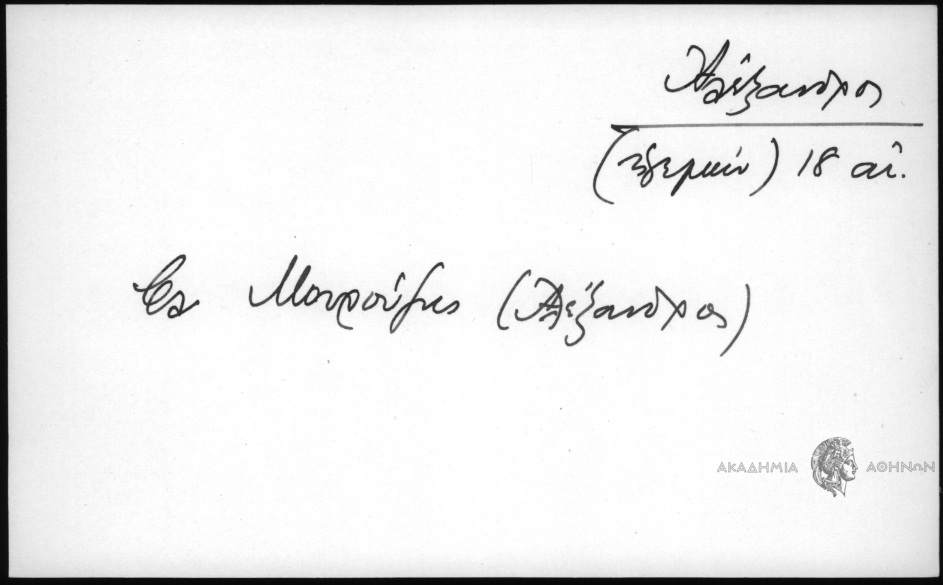 Ἀλέξανδρος
(ἡγεμών) 18 αἰ.
Βλ Μουρούζης (Ἀλέξανδρος)
ΑΚΑΔΗΜΙΑ ΑΘΗΝΩΝ